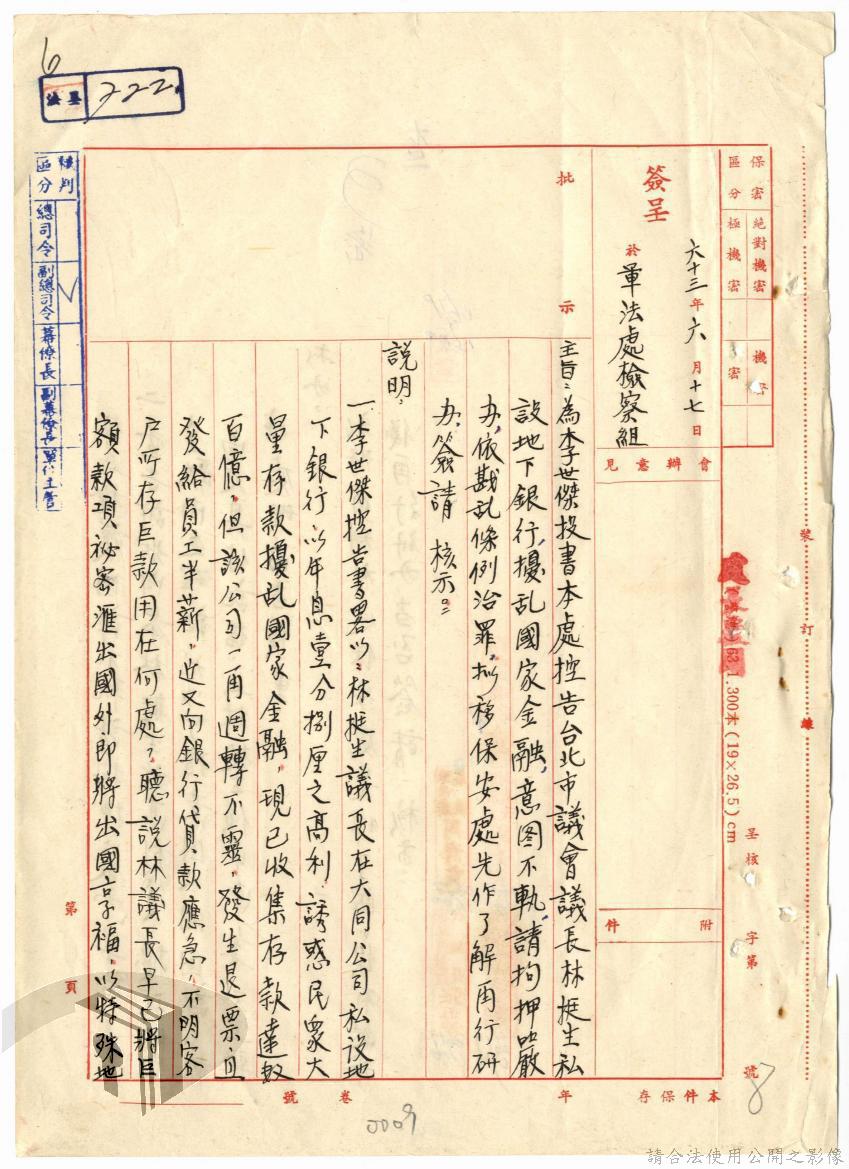 保密區分
絕對機密
極機密
機密
簽呈
六十三年六月十七日
於軍法處檢察組
會辦意見
附件
批示
主旨：為李世傑投書本處控告台北市議會議長林挺生私
設地下銀行，擾乱國家金融，意图不軌，請拘押嚴
办，依戡乱條例治罪，拟移保安處先作了解再行研
办，簽請 核示。
說明：
一、李世傑控告書畧以：林挺生議長在大同公司私設地
下銀行以年息壹分捌厘之高利，誘惑民衆大
量存款擾乱國家金融，現已收集存款達數
百億，但該公司一再週轉不靈，發生退票，且
發給員工半薪，近又向銀行貸款應急，不明客
户所存巨款用在何處？聽說林議長早已將巨
額款項祕密滙出國外即將出國享福，以特殊地
裝訂線
63. 1.300本(19×26.5)cm
呈核 字第 號
8
本件保存 年
卷 號
0009
第 頁
6
722
核判區分
總司令
副總司令
幕僚長
副幕僚長
單位主管
請合法使用公開之影像